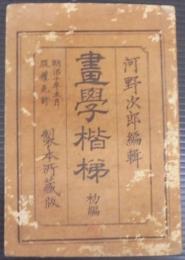 河野次郎編輯
畫學楷梯 初編
明治十年五月
版權免許
製本所藏版